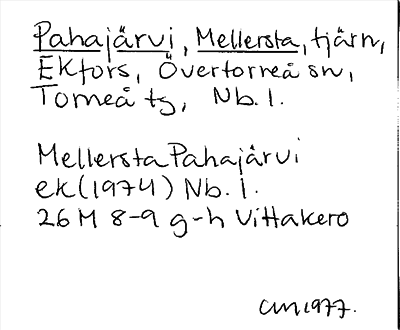 Pahajärvi, Mellersta, tjärn,
Ekfors, Övertorneå sn,
Torneå tg, Nb.l.
Mellersta Pahajärvi
ek(1974) Nb.l.
26M 8-9 g-h Vittakero
CM1977.